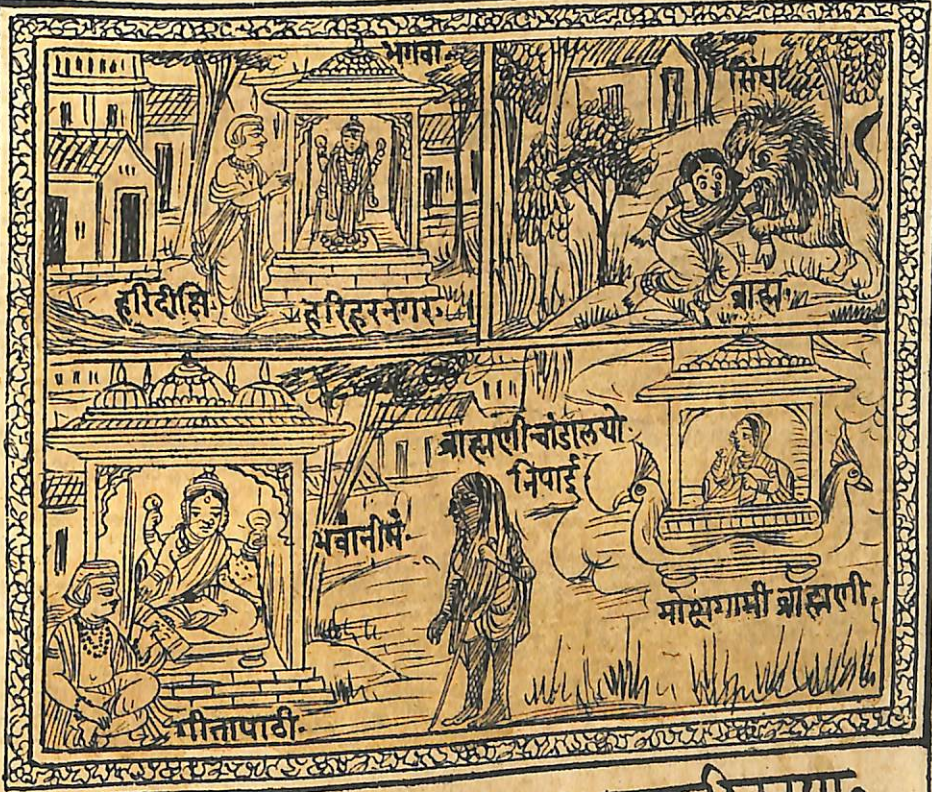 भगवा॰
सिंघ
हरिदीक्षि॰
हरिहरनगर॰
ब्राह्म॰
ब्राह्मणीचांडालयो
निपाई
भवानीमं॰
मोक्षगामी ब्राह्मणी
गीतापाठी॰